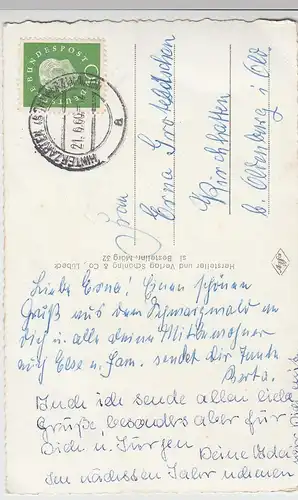 DEUTSCHE BUNDESPOST
HINTERZARTEN
21.6.60
a
Frau
Erna Grotelüschen
Kirchhatten
b. Oldenburg i. Old
Hersteller und Verlag Schöning & Co., Lübeck
sl Bestellnr. Märg 32
Liebe Erna! Einen schönen
Gruß aus dem Schwarzwald an
dich u. alle deine Mitbewohner
auch Else u. Fam. sendet dir Tante
Berta.
Auch ich sende allen liebe
Grüße, besonders aber für
Dich u. Jürgen. Deine Ida
im nächsten Jahr nehmen